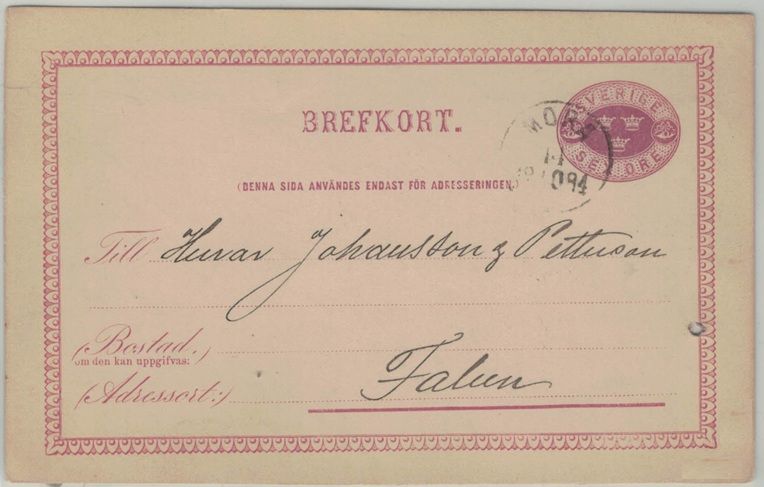 BREFKORT.
SVERIGE
SEX ÖRE
MORA
14
1894
(DENNA SIDA ANVÄNDES ENDAST FÖR ADRESSERINGEN.)
Till Herrar Johansson & Petterson
(Bostad.)
om den kan uppgifvas:
(Adressort:)
Falun